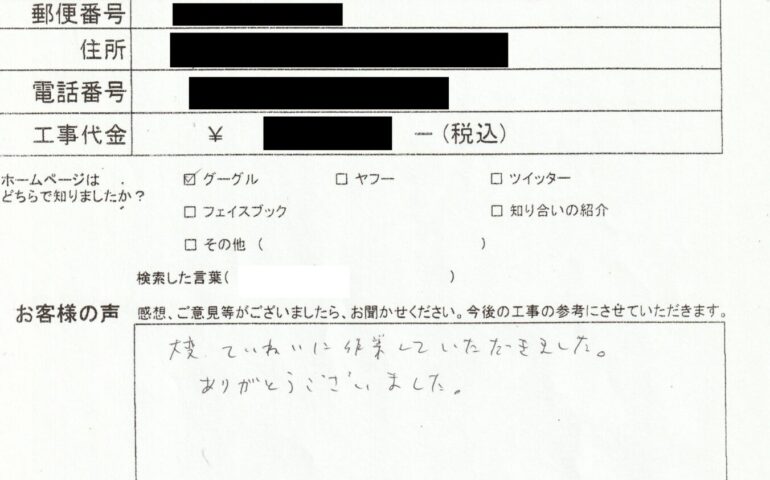 郵便番号
住所
電話番号
工事代金 ¥ ー(税込)
ホームページは
どちらで知りましたか？
☑ グーグル □ ヤフー □ ツイッター
□ フェイスブック □ 知り合いの紹介
□ その他 ( )
検索した言葉( )
お客様の声 感想、ご意見等がございましたら、お聞かせください。今後の工事の参考にさせていただきます。
大変、ていねいに作業していただきました。
ありがとうございました。